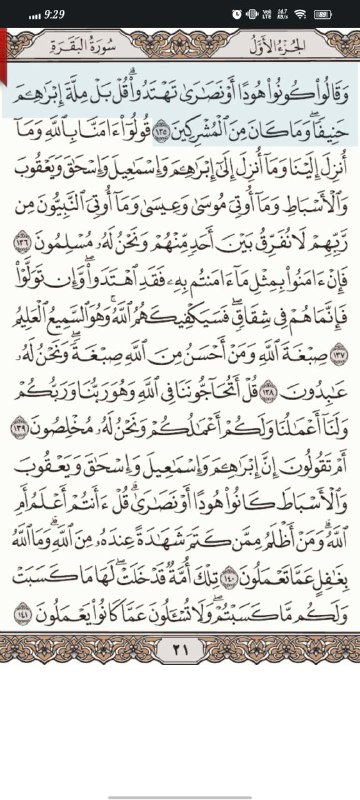 9:29
24.7 KB/S
Vo) LTE
4G
77%
الجزء الأول
سورة البقرة
وَقَالُوا۟ كُونُوا۟ هُودًا أَوْ نَصَـٰرَىٰ تَهْتَدُوا۟ ۗ قُلْ بَلْ مِلَّةَ إِبْرَٰهِـۧمَ
حَنِيفًا ۖ وَمَا كَانَ مِنَ ٱلْمُشْرِكِينَ ١٣٥ قُولُوٓا۟ ءَامَنَّا بِٱللَّهِ وَمَآ
أُنزِلَ إِلَيْنَا وَمَآ أُنزِلَ إِلَىٰٓ إِبْرَٰهِـۧمَ وَإِسْمَـٰعِيلَ وَإِسْحَـٰقَ وَيَعْقُوبَ
وَٱلْأَسْبَاطِ وَمَآ أُوتِىَ مُوسَىٰ وَعِيسَىٰ وَمَآ أُوتِىَ ٱلنَّبِيُّونَ مِن
رَّبِّهِمْ لَا نُفَرِّقُ بَيْنَ أَحَدٍ مِّنْهُمْ وَنَحْنُ لَهُۥ مُسْلِمُونَ ١٣٦
فَإِنْ ءَامَنُوا۟ بِمِثْلِ مَآ ءَامَنتُم بِهِۦ فَقَدِ ٱهْتَدَوا۟ ۖ وَّإِن تَوَلَّوْا۟
فَإِنَّمَا هُمْ فِى شِقَاقٍ ۖ فَسَيَكْفِيكَهُمُ ٱللَّهُ ۚ وَهُوَ ٱلسَّمِيعُ ٱلْعَلِيمُ
١٣٧ صِبْغَةَ ٱللَّهِ ۖ وَمَنْ أَحْسَنُ مِنَ ٱللَّهِ صِبْغَةً ۖ وَنَحْنُ لَهُۥ
عَـٰبِدُونَ ١٣٨ قُلْ أَتُحَآجُّونَنَا فِى ٱللَّهِ وَهُوَ رَبُّنَا وَرَبُّكُمْ
وَلَنَآ أَعْمَـٰلُنَا وَلَكُمْ أَعْمَـٰلُكُمْ وَنَحْنُ لَهُۥ مُخْلِصُونَ ١٣٩
أَمْ تَقُولُونَ إِنَّ إِبْرَٰهِـۧمَ وَإِسْمَـٰعِيلَ وَإِسْحَـٰقَ وَيَعْقُوبَ
وَٱلْأَسْبَاطَ كَانُوا۟ هُودًا أَوْ نَصَـٰرَىٰ ۗ قُلْ ءَأَنتُمْ أَعْلَمُ أَمِ
ٱللَّهُ ۗ وَمَنْ أَظْلَمُ مِمَّن كَتَمَ شَهَـٰدَةً عِندَهُۥ مِنَ ٱللَّهِ ۗ وَمَا ٱللَّهُ
بِغَـٰفِلٍ عَمَّا تَعْمَلُونَ ١٤٠ تِلْكَ أُمَّةٌ قَدْ خَلَتْ ۖ لَهَا مَا كَسَبَتْ
وَلَكُم مَّا كَسَبْتُمْ ۖ وَلَا تُسْـَٔلُونَ عَمَّا كَانُوا۟ يَعْمَلُونَ ١٤١
٢١